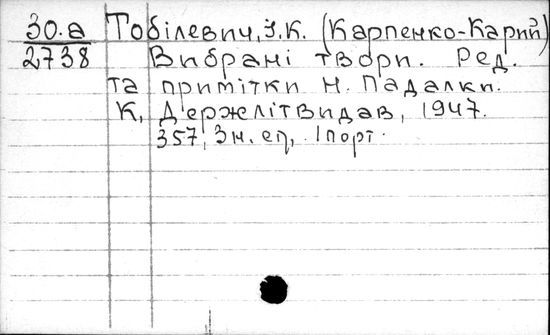 30.а Тобілевич, І.К. (Карпенко-Карий)
2738 Вибрані твори. Ред.
та примітки Н. Падалки.
К, Держлітвидав, 1947.
357, 3 н. еп, 1 порт.